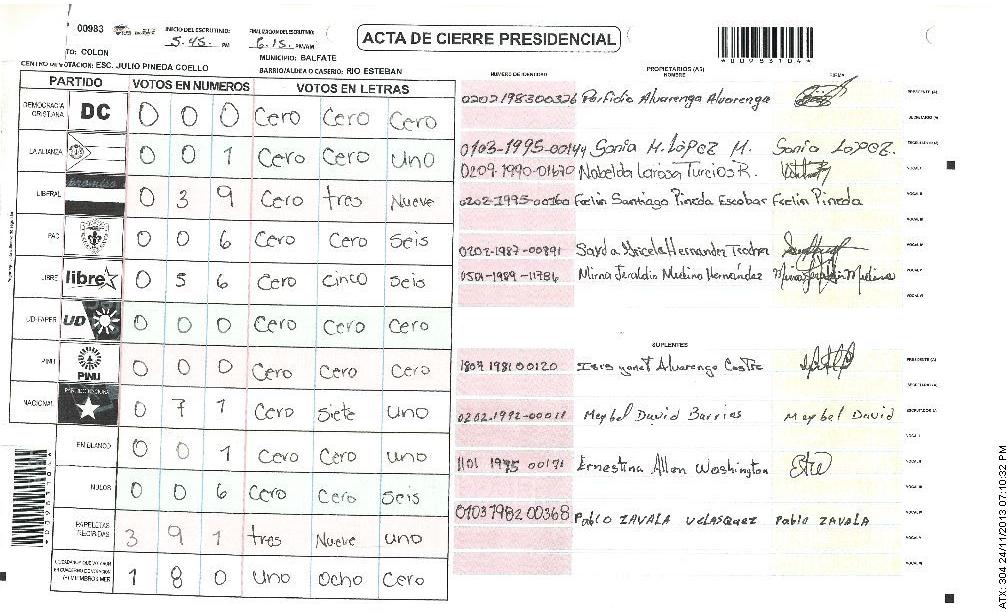 00983 INICIO DEL ESCRUTINIO: 5:45 PM FINALIZACION DEL ESCRUTINIO: 6:15 PM/AM
ACTA DE CIERRE PRESIDENCIAL
TO: COLON MUNICIPIO: BALFATE
CENTRO DE VOTACION: ESC. JULIO PINEDA COELLO BARRIO/ALDEA O CASERIO: RIO ESTEBAN
PARTIDO VOTOS EN NUMEROS VOTOS EN LETRAS
DEMOCRACIA CRISTIANA DC 0 0 0 Cero Cero Cero
LA ALIANZA 0 0 1 Cero Cero uno
LIBERAL 0 3 9 Cero tres Nueve
PAC 0 0 6 Cero Cero Seis
LIBRE libre 0 5 6 Cero cinco seis
UD-FAPER UD 0 0 0 Cero Cero Cero
PINU PINU 0 0 0 Cero Cero Cero
NACIONAL PARTIDO NACIONAL 0 7 1 Cero Siete uno
EN BLANCO 0 0 1 Cero Cero uno
NULOS 0 0 6 Cero Cero Seis
PAPELETAS RECIBIDAS 3 9 1 tres Nueve uno
1 8 0 uno Ocho Cero
NUMERO DE IDENTIDAD PROPIETARIOS (AS) NOMBRE FIRMA
0202198300326 Porfidio Alvarenga Alvarenga PRESIDENTE (A)
SECRETARIO (A)
0103-1995-00144 Sonia M. López M. Sonia López. ESCRUTADOR (A)
0209-1990-01670 Nobelda Larosa Turcios R. VOCAL I
0202-1995-00160 Foelin Santiago Pineda Escobar Foelin Pineda VOCAL II
VOCAL III
0202-1987-00891 Hernandez VOCAL IV
0501-1989-11786 Mirna Jeraldin Medina Hernández VOCAL V
VOCAL VI
SUPLENTES
1807 1981 00120 Alvarenga Castro PRESIDENTE (A)
SECRETARIO (A)
0202-1992-00011 Meybel David Barrias Meybel David ESCRUTADOR (A)
VOCAL I
1101 1975 00171 Ernestina Allen Washington VOCAL II
VOCAL III
0103 1982 00368 Pablo ZAVALA VELASQUEZ Pablo ZAVALA VOCAL IV
VOCAL V
VOCAL VI
*00983104*
ATX: 304 24/11/2013 07:10:32 PM